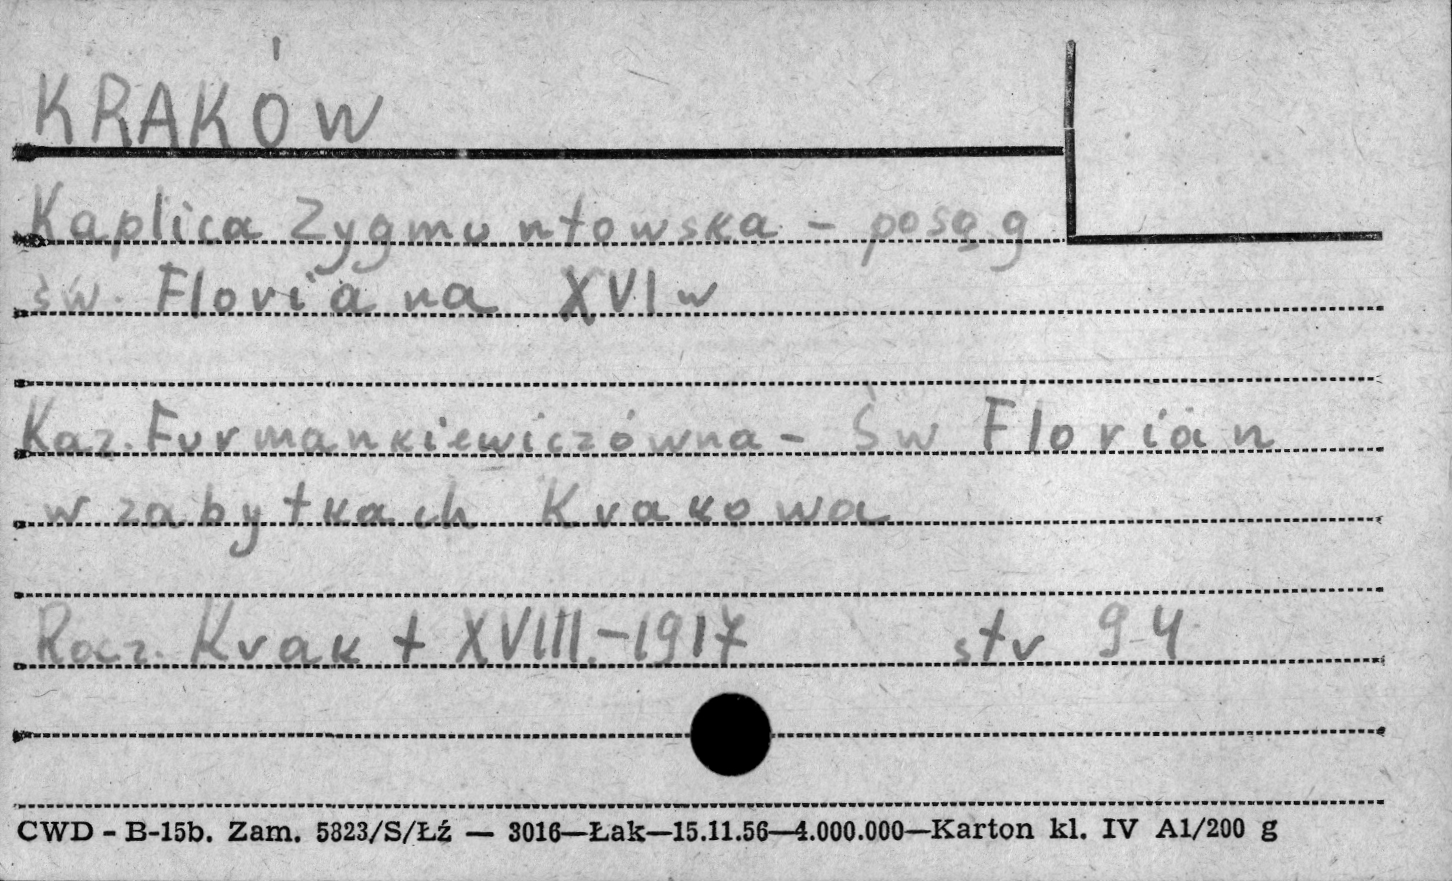 KRAKÓW
Kaplica Zygmuntowska - posąg
św. Floriana XVI w
Kaz. Furmankiewiczówna - Św Florian
w zabytkach Krakowa
Rocz. Krak t XVIII.-1917 str 94
CWD - B-15b. Zam. 5823/S/Łź — 3016—Łak—15.11.56—4.000.000—Karton kl. IV A1/200 g